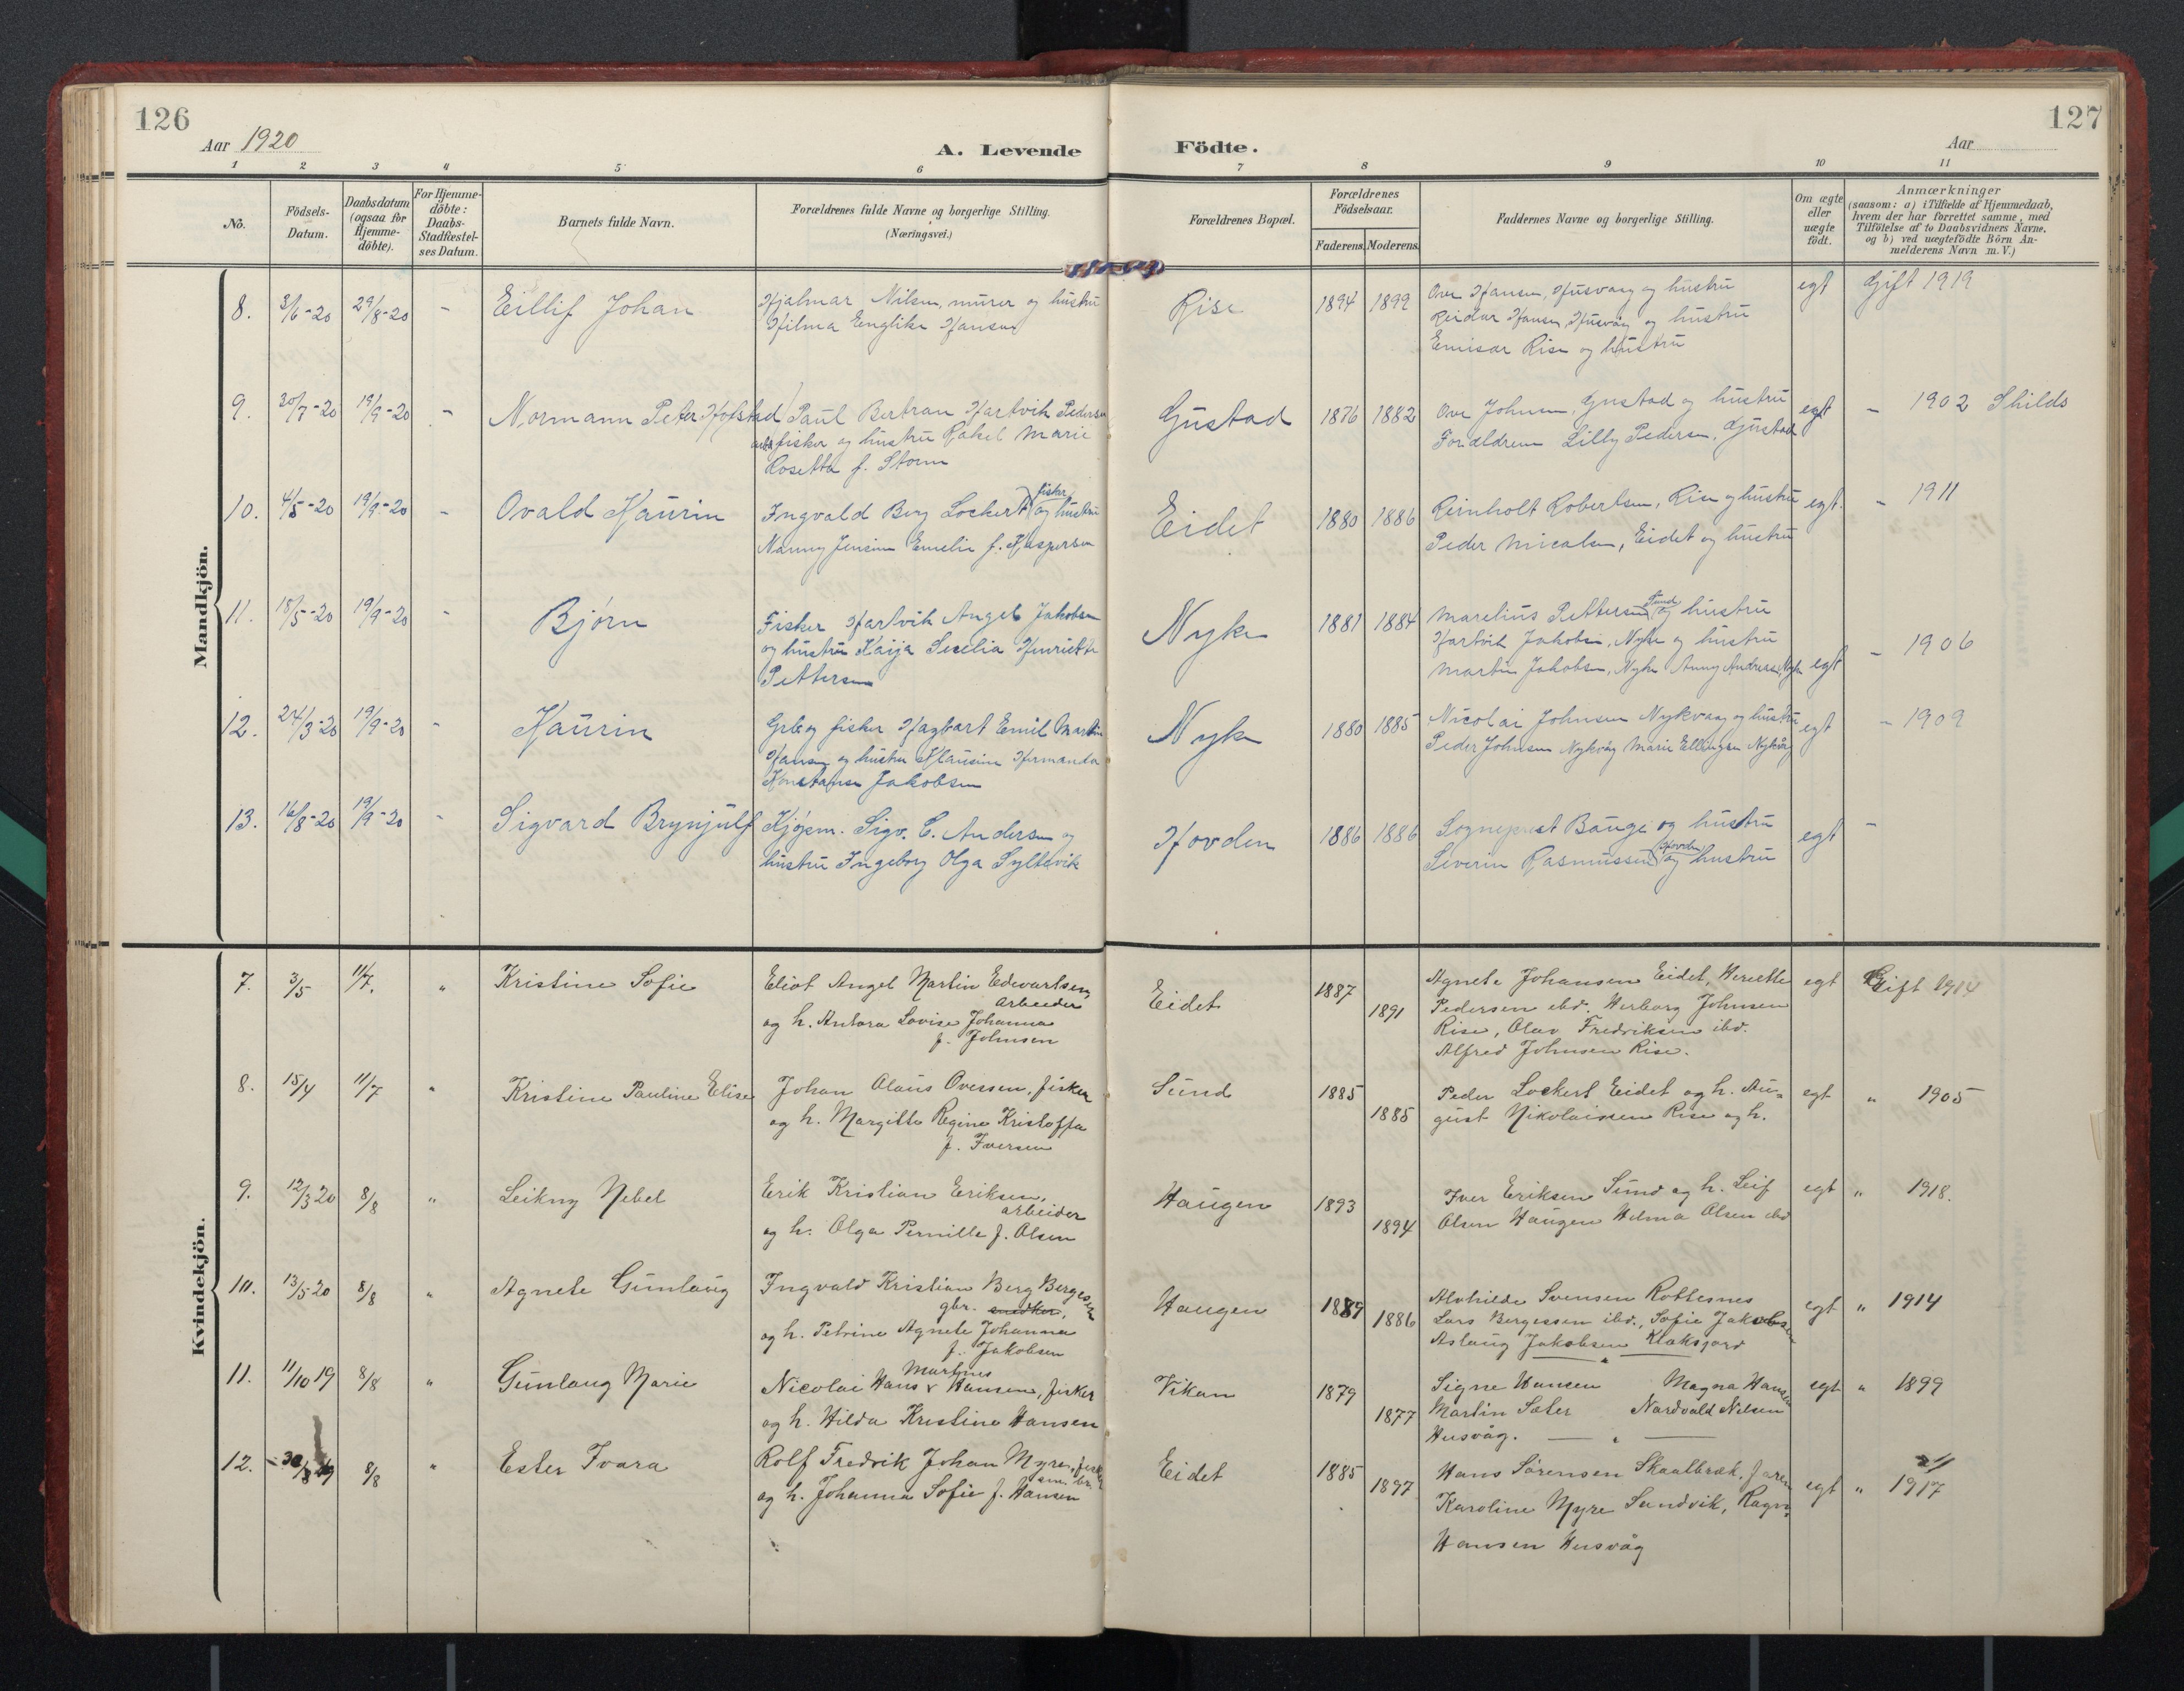 126
127
Aar 1920
A. Levende Födte.
Aar
1 2 3 4 5 6 7 8 9 10 11
No.
Födsels-Datum.
Daabsdatum (ogsaa for Hjemme-döbte).
For Hjemme-döbte: Daabs-Stadfæstel-ses Datum.
Barnets fulde Navn.
Forældrenes fulde Navne og borgerlige Stilling.
(Næringsvei.)
Forældrenes Bopæl.
Forældrenes Födselsaar.
Faderens. Moderens.
Faddernes Navne og borgerlige Stilling.
Om ægte eller uægte födt.
Anmærkninger
(saasom: a) i Tilfælde af Hjemmedaab,
hvem der har forrettet samme, med
Tilföielse af to Daabsvidners Navne,
og b) ved uægtefödte Börn An-
melderens Navn m. V.)
Mandkjön.
8. 3/6-20 29/8-20 - Eillif Johan
Hjalmar Nilsen, murer og hustru
Hilma Englike Hansen
Rise 1894 1899
Ove Hansen, Husvaag og hustru
Reidar Hansen, Husvåg og hustru
Emisar Rise og hustru
egt Gift 1919
9. 30/7-20 19/9-20 - Normann Peter Hofstad
Paul Bertran Hartvik Pedersen
fisker og hustru Rakel Marie
Rosetta f. Storm
Gustad 1876 1882
Ove Johnsen, Gustad og hustru
Forældrene Lilly Pedersen, Gustad
egt - 1902 Skilds
10. 4/5-20 19/9-20 - Ovald Kaurin
Ingvald Berg Lockert fisker og hustru
Nanny Jensine Emelie f. Kaspersen
Eidet 1880 1886
Reinholt Robertsen, Rise og hustru
Peder Micalsen, Eidet og hustru
egt. - 1911
11. 18/5-20 19/9-20 - Bjørn
Fisker Hartvik Angel Jakobsen
og hustru Kaija Secelia Henriette
Pettersen
Nyke 1881 1884
Marelius Pettersen Sund og hustru
Hartvik Jakobsen, Nyke og hustru
Martin Jakobsen, Nyke Anny Andersen, Nyke
egt - 1906
12. 24/3-20 19/9-20 - Kaurin
Grbr og fisker Hagbart Emil Martin
Hansen og hustru Klausine Hermanda
Konstanse Jakobsen
Nyke 1880 1885
Nicolai Johnsen Nykvaag og hustru
Peder Johnsen Nykvåg Marie Ellingsen Nykvåg
egt - 1909
13. 16/8-20 19/9-20 - Sigvard Brynjulf
Kjøpm. Sigv. C. Andersen og
hustru Ingeborg Olga Syltevik
Hovden 1886 1886
Sogneprest Bauge og hustru
Severin Rasmussen Hovden og hustru
egt -
Kvindekjön.
7. 3/5 11/7. " Kristine Sofie
Eliot Angel Martin Edvartsen,
Arbeider
og h. Antora Lovise Johanna
f. Johnsen
Eidet 1887 1891
Agnete Johansen Eidet,
Pedersen ibd. Herborg Johnsen
Rise, Olav Fredriksen ibd.
Alfred Johnsen Rise.
egt Gift 1914
8. 15/4 11/7 " Kristine Pauline Elise
Johan Olaus Ovessen, fisker
og h. Margitte Regine Kristoffa
f. Iversen
Sund 1885 1885
Peder Lockert Eidet og h. Au-
gust Nikolaissen Rise og h.
egt " 1905
9. 12/3 20 8/8 " Leikny Nebel
Erik Kristian Eriksen,
arbeider
og h. Olga Pernille f. Olsen
Haugen 1893 1894
Iver Eriksen Sund og h. Leif
Olsen Haugen Helma Olsen ibd
egt " 1918.
10. 13/5 20 8/8 " Agnete Gunlaug
Ingvald Kristian Berg Bergesen
gbr. snedker,
og h. Petrine Agnete Johanna
f. Jakobsen
Haugen 1889 1886
Alvhilde Svensen Rottesnes
Lars Bergessen ibd., Sofie Jakobsen
Aslaug Jakobsen Klaksjord
egt " 1914
11. 11/10 19 8/8 " Gunlaug Marie
Martines
Nicolai Hans v Hansen, fisker
og h. Hilda Kristine Hansen
Vikan 1879 1877
Signe Hansen Magna Hansen
Martin Sæter Nardvald Nilsen
Husvåg. — " —
egt " 1899
12. 8/8 " Ester Ivara
Rolf Fredrik Johan Myre, fisker
og h. Johanna Sofie f. Hansen
Eidet 1885 1897
Hans Sörensen Skaalbræk,
Karoline Myre Sandvik, Ragn.
Hansen Husvåg
egt " 1917